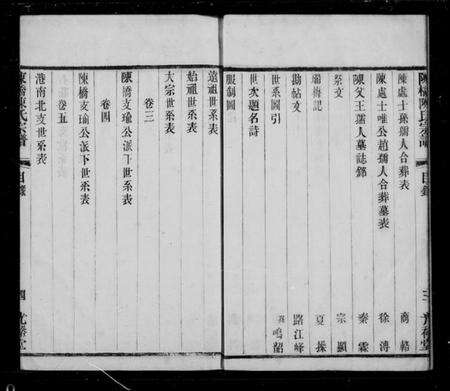 陳橋陳氏宗譜 目錄 三 光裕堂
陳處士孫孺人合葬表 商輅
陳處士唯公趙孺人合葬墓表 徐溥
陳父王孺人墓誌銘 秦霖
祭文 宗顯
廟記 夏採
勘帖文 路江峰
世系圖引 鳴韶
世次題名詩
服制圖
遠祖世系表
始祖世系表
大宗世系表
卷三
陳橋支瑜公派下世系表
卷四
陳橋支瑜公派下世系表
卷五
港南北支世系表
陳橋陳氏宗譜 目錄 四 光裕堂